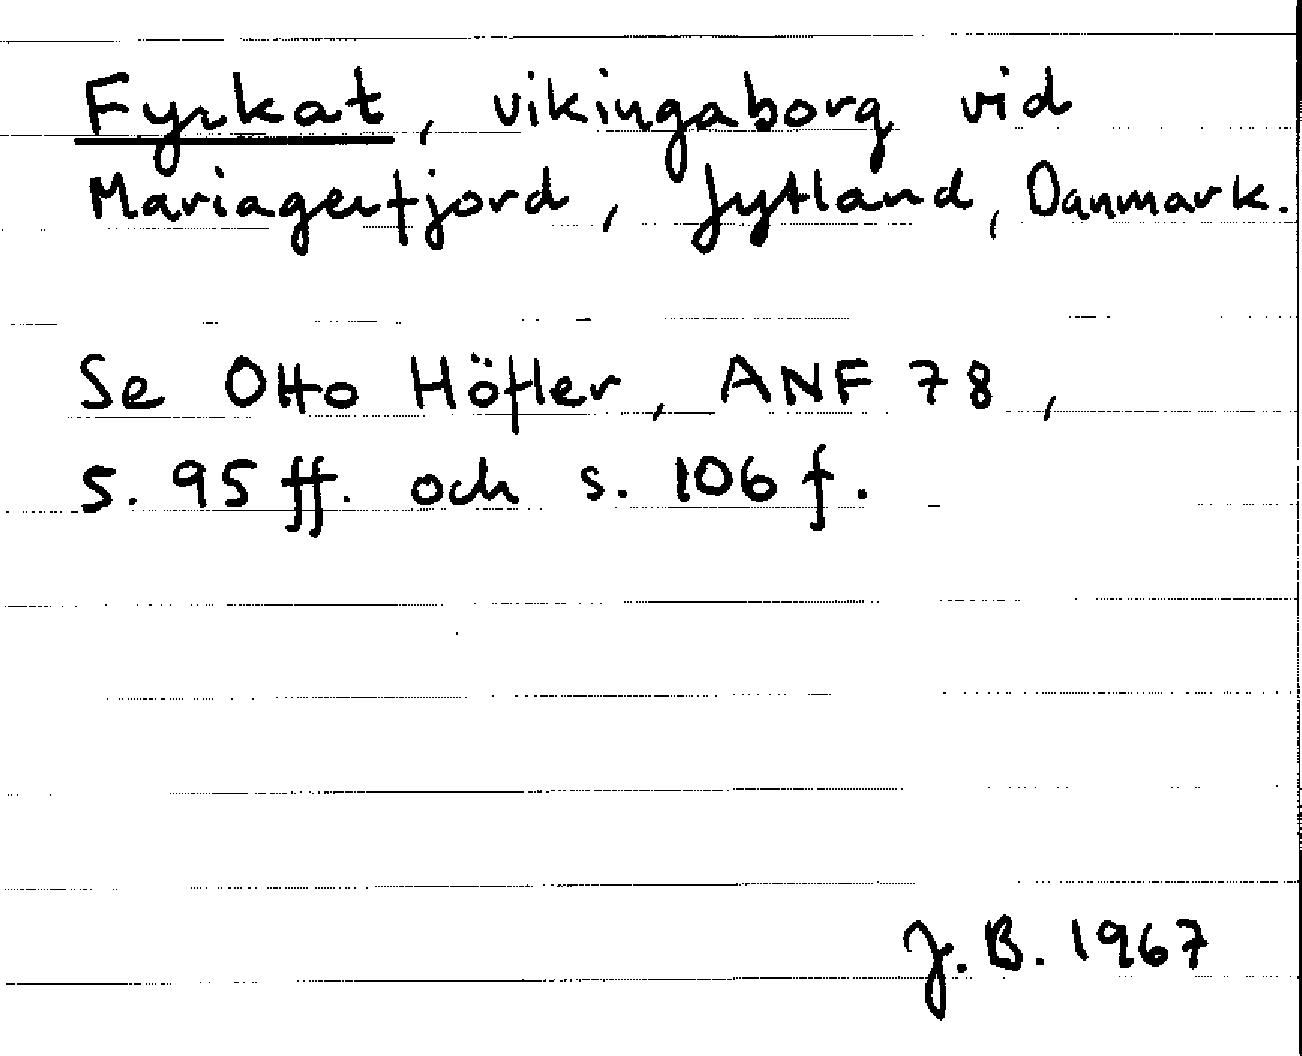 Fyrkat, vikingaborg vid
Mariagerfjord, Jytland, Danmark.
Se Otto Höfler, ANF 78,
s. 95 ff. och s. 106 f.
J. B. 1967